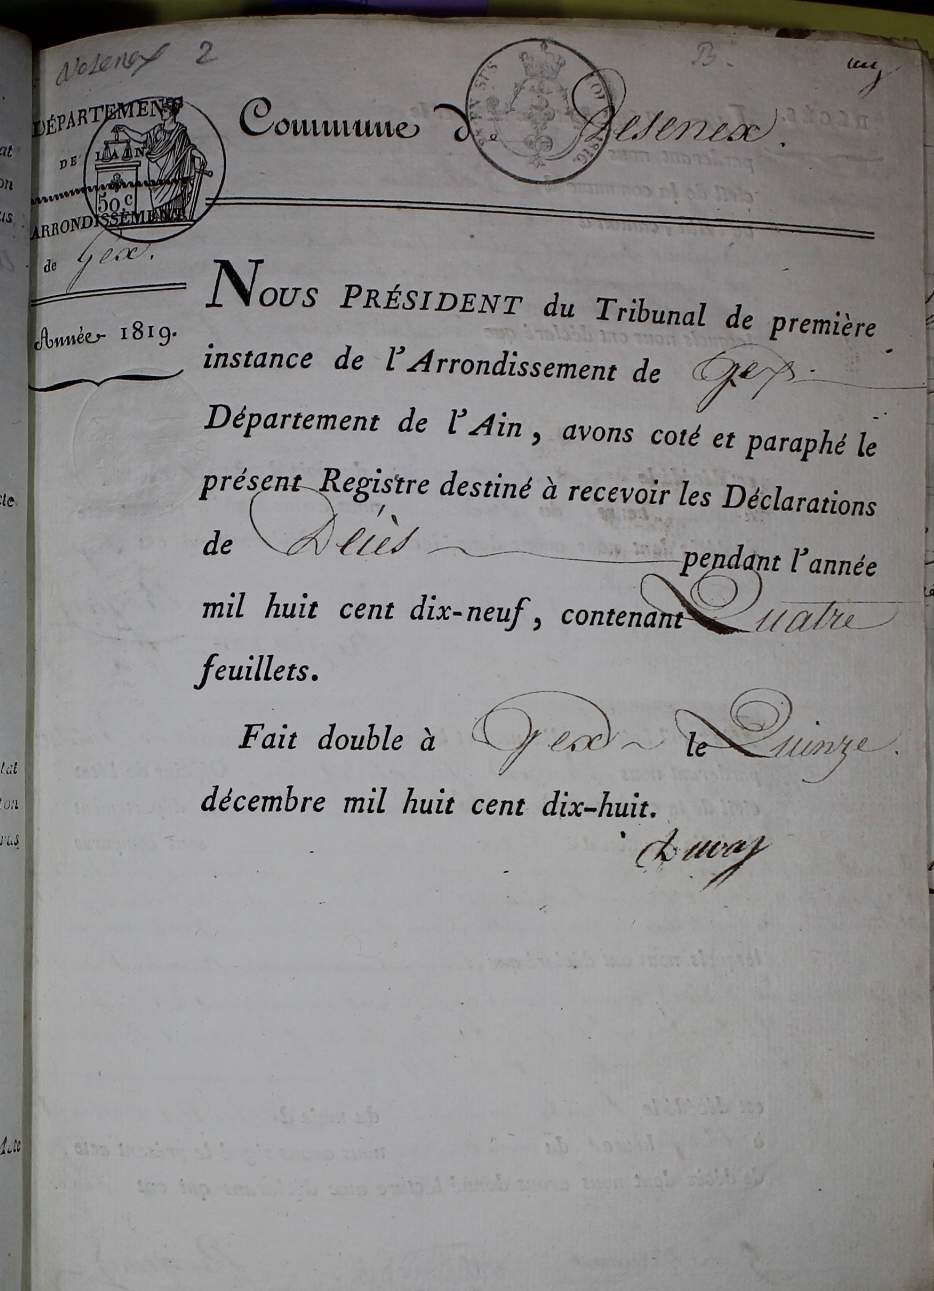 2
B.
DÉPARTEMENT
DE L'AIN
50c
ARRONDISSEMENT
de Gex.
Commune de Vesenex.
Année 1819.
NOUS PRÉSIDENT du Tribunal de première
instance de l'Arrondissement de Gex.
Département de l'Ain, avons coté et paraphé le
présent Registre destiné à recevoir les Déclarations
de Décès pendant l'année
mil huit cent dix-neuf, contenant Quatre
feuillets.
Fait double à Gex le Quinze
décembre mil huit cent dix-huit.